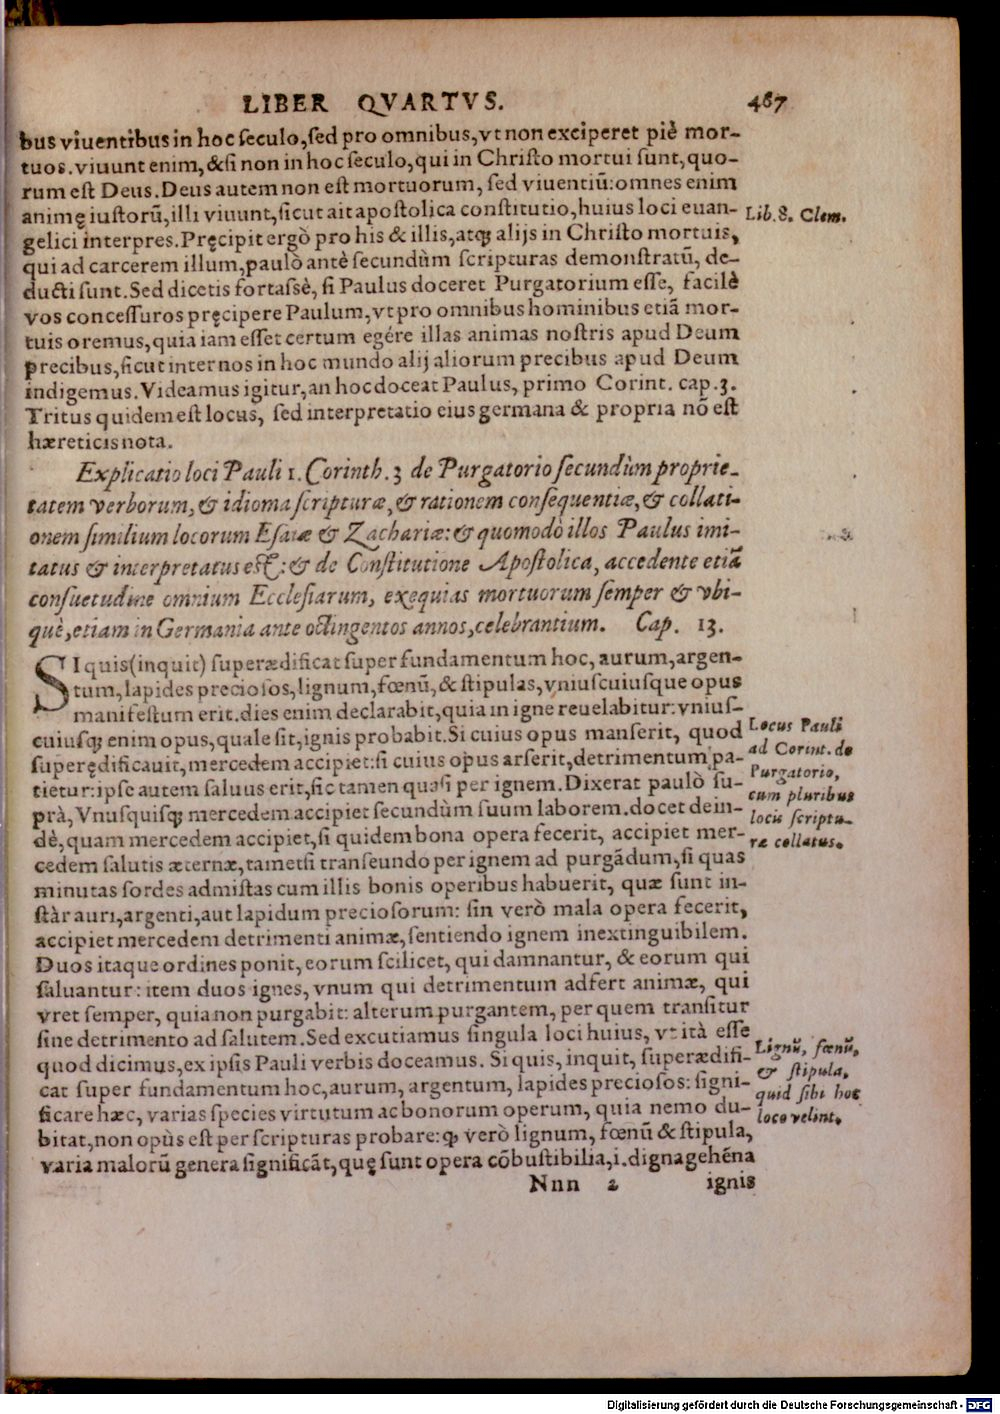 LIBER QVARTVS. 467
bus viuentibus in hoc ſeculo, ſed pro omnibus, vt non exciperet piè mor-
tuos. viuunt enim, & ſi non in hoc ſeculo, qui in Chriſto mortui ſunt, quo-
rum eſt Deus. Deus autem non eſt mortuorum, ſed viuentiũ: omnes enim
animę iuſtorũ, illi viuunt, ſicut ait apoſtolica conſtitutio, huius loci euan-
Lib. 8. Clem.
gelici interpres. Pręcipit ergò pro his & illis, atq; alijs in Chriſto mortuis,
qui ad carcerem illum, paulò antè ſecundùm ſcripturas demonſtratũ, de-
ducti ſunt. Sed dicetis fortaſsè, ſi Paulus doceret Purgatorium eſſe, facilè
vos conceſſuros pręcipere Paulum, vt pro omnibus hominibus etiã mor-
tuis oremus, quia iam eſſet certum egére illas animas noſtris apud Deum
precibus, ſicut inter nos in hoc mundo alij aliorum precibus apud Deum
indigemus. Videamus igitur, an hoc doceat Paulus, primo Corint. cap. 3.
Tritus quidem eſt locus, ſed interpretatio eius germana & propria nõ eſt
hæreticis nota.
Explicatio loci Pauli 1. Corinth. 3 de Purgatorio ſecundùm proprie-
tatem verborum, & idioma ſcripturæ, & rationem conſequentiæ, & collati-
onem ſimilium locorum Eſaiæ & Zachariæ: & quomodò illos Paulus imi-
tatus & interpretatus eſt: & de Conſtitutione Apoſtolica, accedente etiã
conſuetudine omnium Eccleſiarum, exequias mortuorum ſemper & vbi-
què, etiam in Germania ante octingentos annos, celebrantium. Cap. 13.
SI quis (inquit) ſuperædificat ſuper fundamentum hoc, aurum, argen-
tum, lapides precioſos, lignum, fœnũ, & ſtipulas, vniuſcuiuſque opus
manifeſtum erit. dies enim declarabit, quia in igne reuelabitur: vniuſ-
cuiuſq; enim opus, quale ſit, ignis probabit. Si cuius opus manſerit, quod
ſuperędificauit, mercedem accipiet: ſi cuius opus arſerit, detrimentum pa-
tietur: ipſe autem ſaluus erit, ſic tamen quaſi per ignem. Dixerat paulò ſu-
prà, Vnuſquiſq; mercedem accipiet ſecundùm ſuum laborem. docet dein-
dè, quam mercedem accipiet, ſi quidem bona opera fecerit, accipiet mer-
Locus Pauli
ad Corint. de
Purgatorio,
cum pluribus
locis ſcriptu-
ræ collatus.
cedem ſalutis æternæ, tametſi tranſeundo per ignem ad purgãdum, ſi quas
minutas ſordes admiſtas cum illis bonis operibus habuerit, quæ ſunt in-
ſtàr auri, argenti, aut lapidum precioſorum: ſin verò mala opera fecerit,
accipiet mercedem detrimenti animæ, ſentiendo ignem inextinguibilem.
Duos itaque ordines ponit, eorum ſcilicet, qui damnantur, & eorum qui
ſaluantur: item duos ignes, vnum qui detrimentum adfert animæ, qui
vret ſemper, quia non purgabit: alterum purgantem, per quem tranſitur
ſine detrimento ad ſalutem. Sed excutiamus ſingula loci huius, vt ità eſſe
quod dicimus, ex ipſis Pauli verbis doceamus. Si quis, inquit, ſuperædifi-
cat ſuper fundamentum hoc, aurum, argentum, lapides precioſos: ſigni-
ficare hæc, varias ſpecies virtutum ac bonorum operum, quia nemo du-
Lignũ, fœnũ,
& ſtipula,
quid ſibi hoc
loco velint.
bitat, non opùs eſt per ſcripturas probare: ꝙ verò lignum, fœnũ & ſtipula,
varia malorũ genera ſignificãt, quę ſunt opera cõbuſtibilia, i. digna gehẽna
Nnn 2 ignis
Digitalisierung gefördert durch die Deutsche Forschungsgemeinschaft - DFG